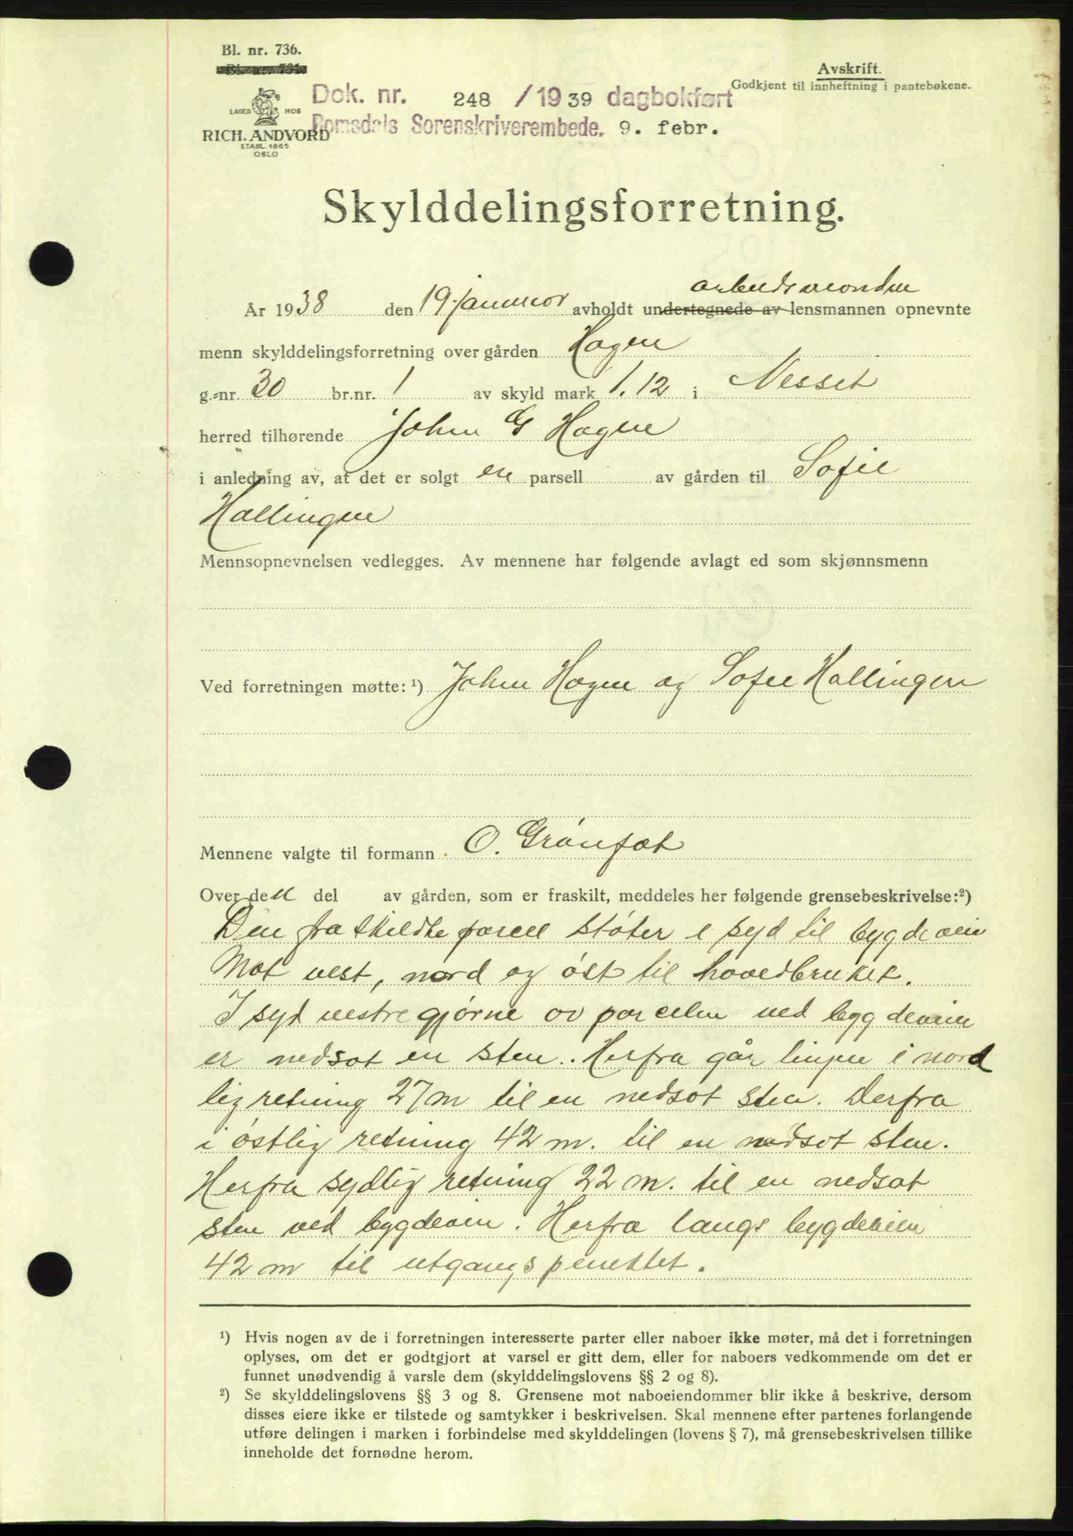 Bl. nr. 736.
Avskrift.
Godkjent til innheftning i pantebøkene.
Dok. nr. 248 /1939 dagbokført
LAGER HOS
Romsdals Sorenskriverembede. 9. febr.
RICH. ANDVORD
ETABL. 1865
OSLO
Skylddelingsforretning.
arbeidsmonden
År 1938 den 19. januar avholdt undertegnede av lensmannen opnevnte
menn skylddelingsforretning over gården Hagen
g.-nr. 30 br.nr. 1 av skyld mark 1.12 i Nesset
herred tilhørende John G Hagen
i anledning av, at det er solgt en parsell av gården til Sofie
Hallingen
Mennsopnevnelsen vedlegges. Av mennene har følgende avlagt ed som skjønnsmenn
Ved forretningen møtte: ¹) John Hagen og Sofie Hallingen
Mennene valgte til formann O. Grønset
Over den del av gården, som er fraskilt, meddeles her følgende grensebeskrivelse:²)
Den fraskildte parcel støter i syd til bygdevein
Mot vest, nord og øst til hovedbruket.
I syd vestre gjørne av parcelen ved bygdeveien
er nedsat en sten. Herfra går linjen i nord
lig retning 27 m til en nedsat sten. Derfra
i østlig retning 42 m. til en nedsat sten.
Herfra sydlig retning 22 m. til en nedsat
sten ved bygdevein. Herfra langs bygdeveien
42 m til utgangspunktet.
¹) Hvis nogen av de i forretningen interesserte parter eller naboer ikke møter, må det i forretningen
oplyses, om det er godtgjort at varsel er gitt dem, eller for naboers vedkommende om det er
funnet unødvendig å varsle dem (skylddelingslovens §§ 2 og 8).
²) Se skylddelingslovens §§ 3 og 8. Grensene mot naboeiendommer blir ikke å beskrive, dersom
disses eiere ikke er tilstede og samtykker i beskrivelsen. Skal mennene efter partenes forlangende
utføre delingen i marken i forbindelse med skylddelingen (lovens § 7), må grensebeskrivelsen tillike
inneholde det fornødne herom.